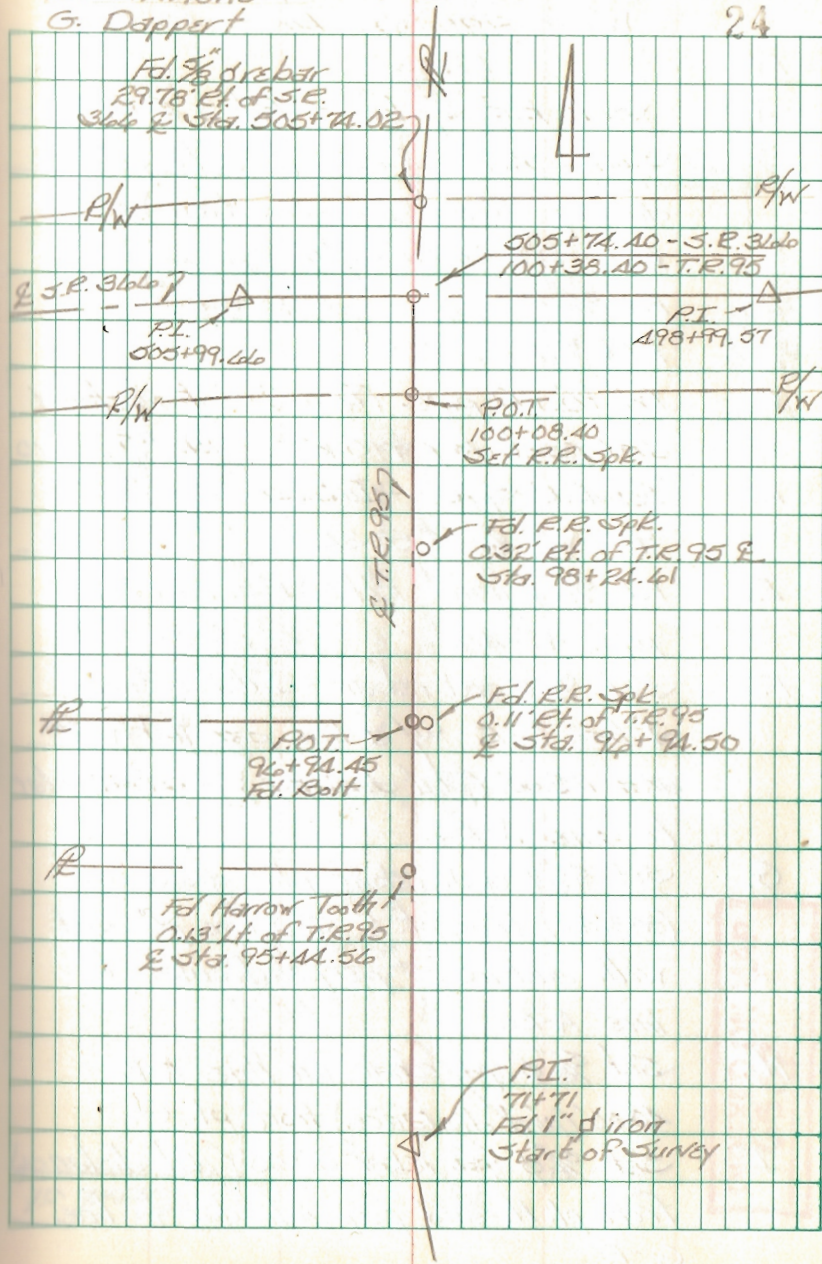 G. Dappert
24
Fd. 5/8" ø rebar
29.78' Rt. of S.R.
366 ℄ Sta. 505+74.02
R/W
R/W
505+74.40 - S.R. 366
100+38.40 - T.R. 95
℄ S.R. 366
P.I.
505+99.66
P.I.
498+99.57
R/W
R/W
P.O.T.
100+08.40
Set R.R. Spk.
℄ T.R. 95
Fd. R.R. Spk.
0.32' Rt. of T.R. 95 ℄
Sta. 98+24.61
Fd. R.R. Spk
0.11' Rt. of T.R. 95
℄ Sta. 96+94.50
P.O.T.
96+94.45
Fd. Bolt
Fd Harrow Tooth
0.13' Lt. of T.R. 95
℄ Sta. 95+44.56
P.I.
71+71
Fd 1" ø iron
Start of Survey